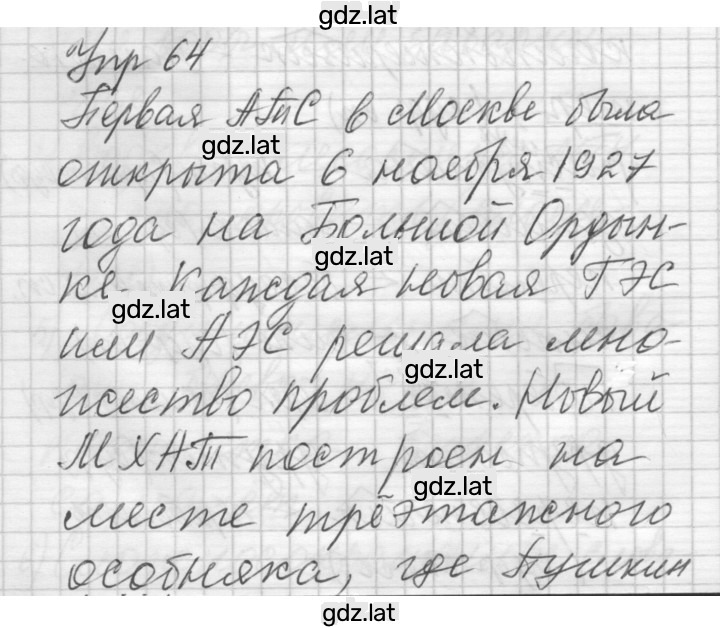 gdz.lat
Упр 64
Первая АТС в Москве была
gdz.lat
открыта 6 ноября 1927
года на Большой Ордын-
gdz.lat
ке. Каждая новая ГЭС
gdz.lat
или АЭС решала мно-
gdz.lat
жество проблем. Новый
МХАТ построен на
gdz.lat
месте трёхэтажного
особняка, где Пушкин
gdz.lat